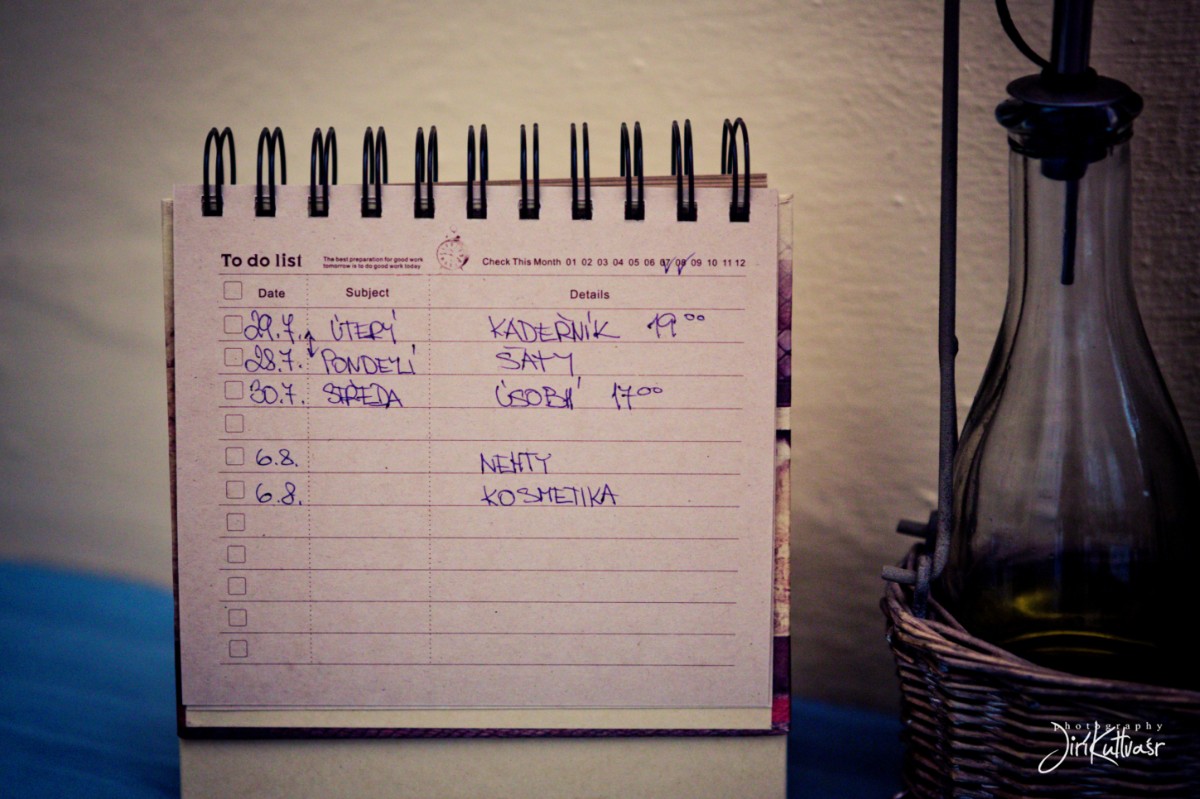 To do list
The best preparation for good work
tomorrow is to do good work today
Check This Month 01 02 03 04 05 06 07 08 09 10 11 12
Date Subject Details
29.7. ÚTERÝ KADEŘNÍK 19⁰⁰
28.7. PONDELÍ ŠATY
30.7. STŘEDA 17⁰⁰
6.8. NEHTY
6.8. KOSMETIKA
Photography
Jiří Kuttvašr